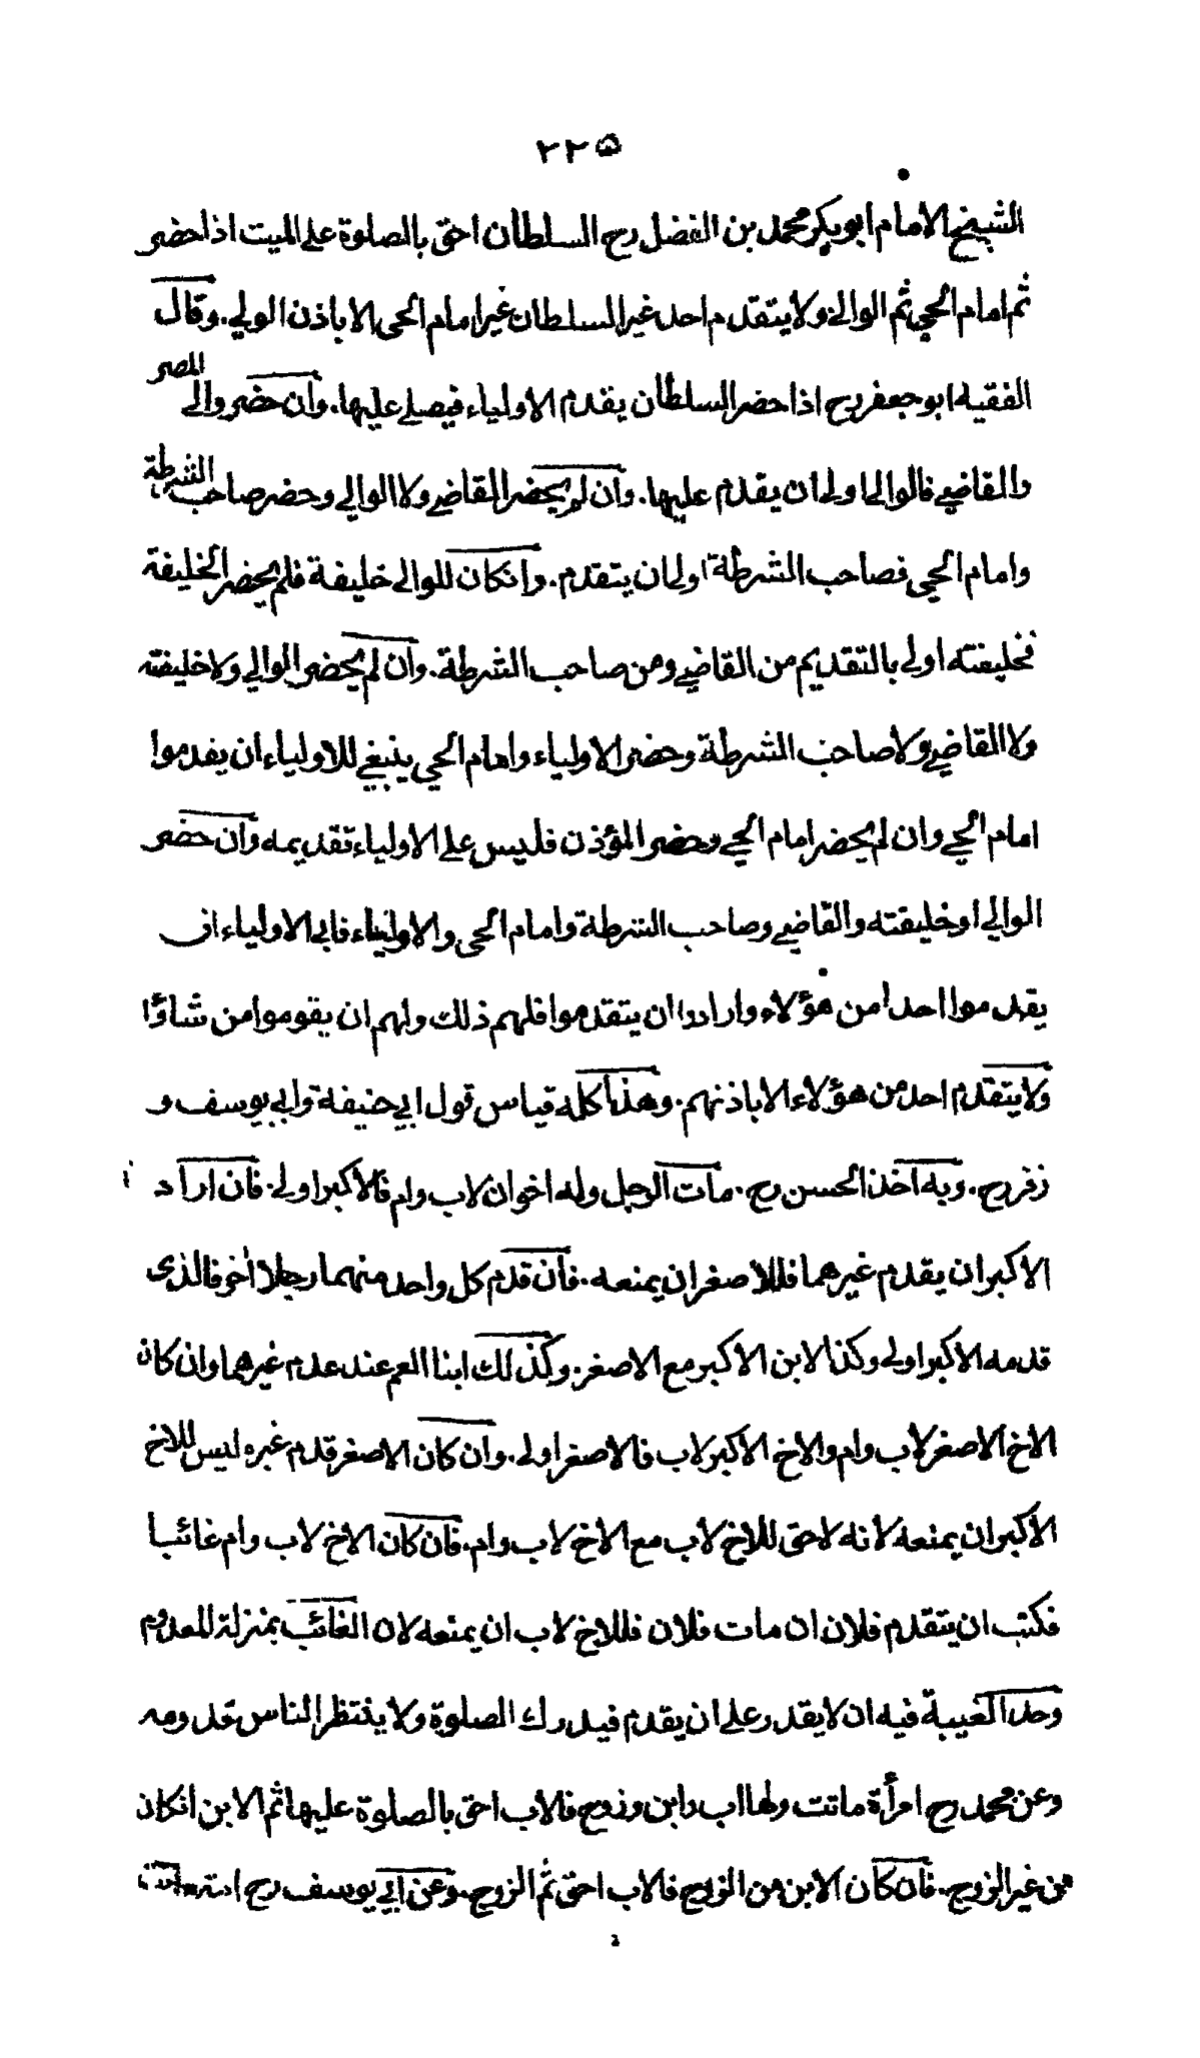 ٢٢٥
الشيخ الامام ابو بكر محمد بن الفضل رح السلطان احق بالصلوة على الميت اذا حضر
ثم امام الحي ثم الوالي ولا يتقدم احد غير السلطان غير امام الحي الا باذن الولي. وقال
الفقيه ابو جعفر رح اذا حضر السلطان يقدم الاولياء فيصلي عليها. وان حضر والي المصر
والقاضي فالوالي اولى ان يقدم عليها. وان لم يحضر القاضي ولا الوالي وحضر صاحب الشرطة
وامام الحي فصاحب الشرطة اولى ان يتقدم. وانكان للوالي خليفة فلم يحضر الخليفة
فخليفته اولى بالتقديم من القاضي ومن صاحب الشرطة. وان لم يحضر الوالي ولا خليفته
ولا القاضي ولا صاحب الشرطة وحضر الاولياء وامام الحي ينبغي للاولياء ان يقدموا
امام الحي وان لم يحضر امام الحي وحضر المؤذن فليس على الاولياء تقديمه وان حضر
الوالي او خليفته والقاضي وصاحب الشرطة وامام الحي والاولياء فابى الاولياء ان
يقدموا احدا من هؤلاء وارادوا ان يتقدموا فلهم ذلك ولهم ان يقوموا من شاؤا
ولا يتقدم احد من هؤلاء الا باذنهم. وهذا كله قياس قول ابي حنيفة وابي يوسف و
زفر رح. وبه اخذ الحسن رح. مات الرجل وله اخوان لاب وام فالاكبر اولى. فان اراد
الاكبر ان يقدم غيرهما فللاصغر ان يمنعه. فان قدم كل واحد منهما رجلا اخر فالذي
قدمه الاكبر اولى وكذا الابن الاكبر مع الاصغر. وكذلك ابنا العم عند عدم غيرهما وان كان
الاخ الاصغر لاب وام والاخ الاكبر لاب فالاصغر اولى. وان كان الاصغر قدم غيره ليس للاخ
الاكبر ان يمنعه لانه لا حق للاخ لاب مع الاخ لاب وام. فان كان الاخ لاب وام غائبا
فكتب ان يتقدم فلان ان مات فلان فللاخ لاب ان يمنعه لان الغائب بمنزلة المعدوم
وحد الغيبة فيه ان لا يقدر على ان يقدم فيدرك الصلوة ولا ينتظر الناس قدومه
وعن محمد رح امرأة ماتت ولها اب وابن وزوج فالاب احق بالصلوة عليها ثم الابن انكان
من غير الزوج. فان كان الابن من الزوج فالاب احق ثم الزوج. وعن ابي يوسف رح